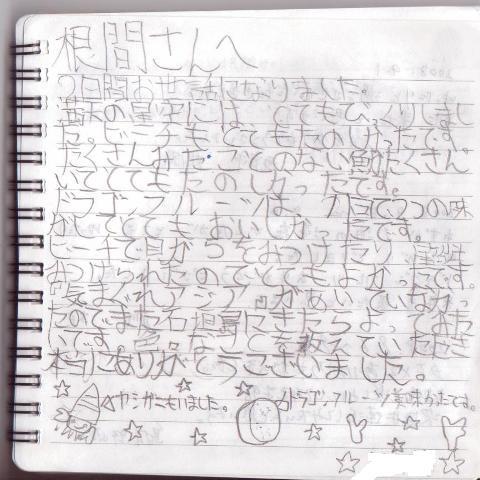 根間さんへ
2日間お世話になりました。
満天の星空には とてもびっくりしまし
た。ビーチも とてもたのしかったです。
たくさん見たことのない動たくさん
いてとてもたのしかったです。
ドラゴンフルーツは、
がとてもおいしかったです。
ビーチで貝がらをみつけたり
みつけられたのでとてもよかったです。
気まぐれアジアンがあいていなかっ
たのでまた石垣島にきたらよってみた
いです。色々なことを教えていただき
本当にありがとうございました。
ヤシガニもいました。
ドラゴンフルーツ美味かたです。